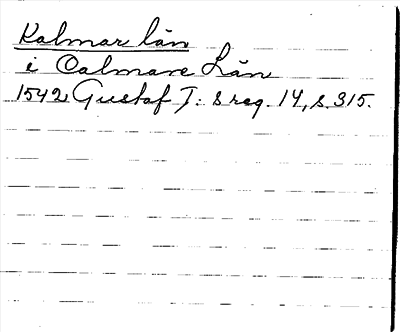 Kalmar län
i Calmare Län
1542 Gustaf I: s reg. 14, s. 315.